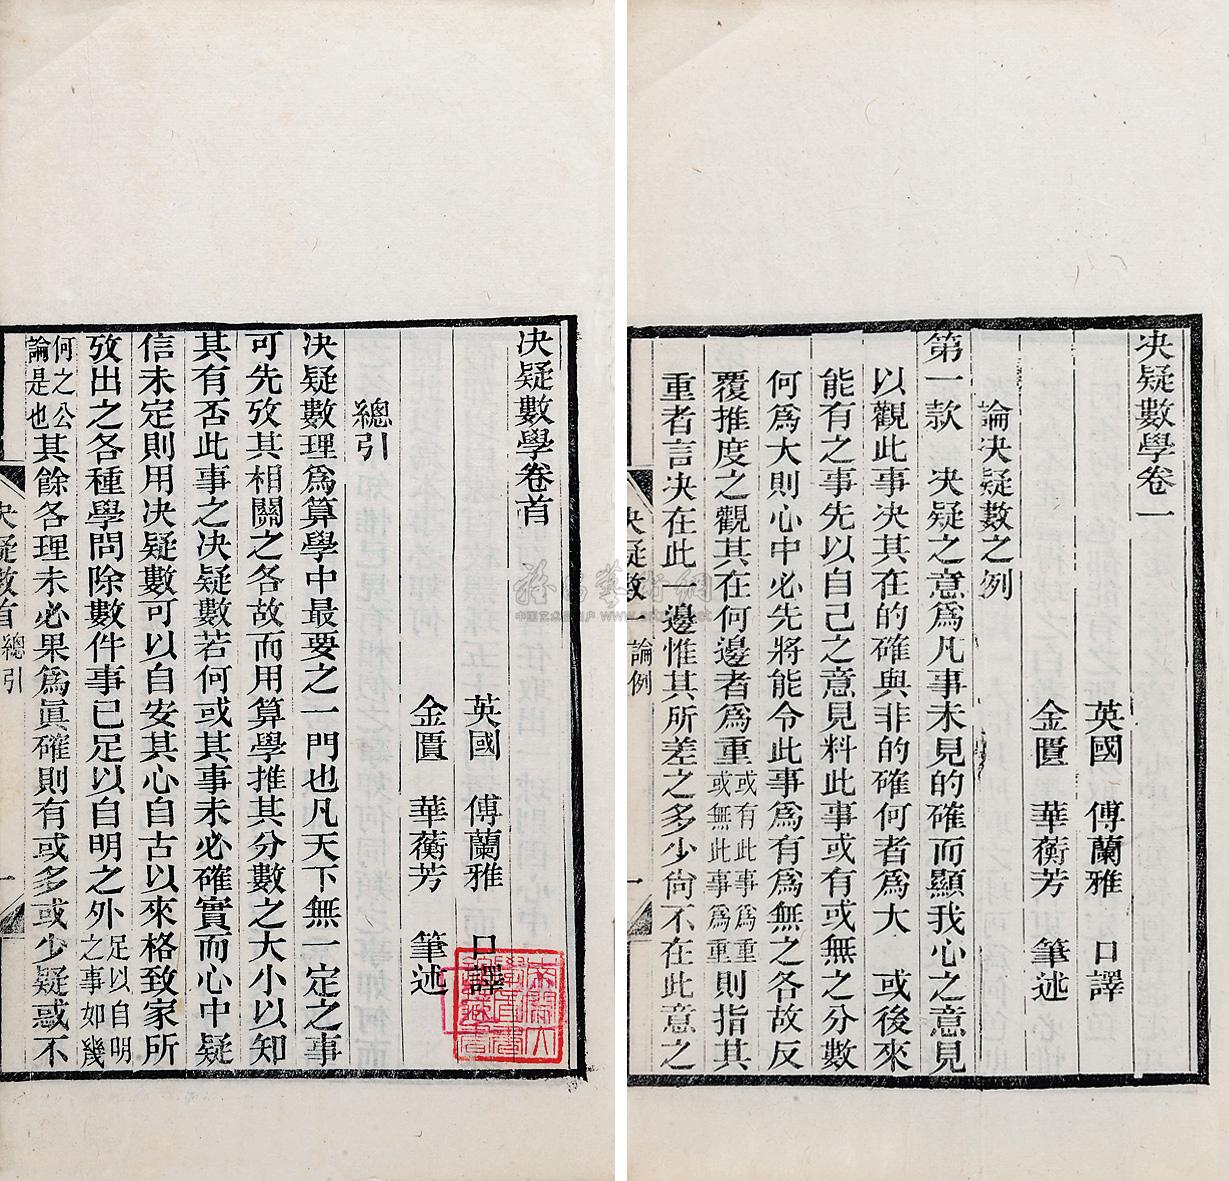 决疑數學卷首
英國 傅蘭雅 口譯
金匱 華蘅芳 筆述
總引
决疑數理爲算學中最要之一門也凡天下無一定之事
可先攷其相關之各故而用算學推其分數之大小以知
其有否此事之决疑數若何或其事未必確實而心中疑
信未定則用决疑數可以自安其心自古以來格致家所
攷出之各種學問除數件事已足以自明之外足以自明之事如幾
何之公論是也其餘各理未必果爲眞確則有或多或少疑惑不
决疑數首 總引 一
决疑數學卷一
英國 傅蘭雅 口譯
金匱 華蘅芳 筆述
論决疑數之例
第一款 决疑之意爲凡事未見的確而顯我心之意見
以觀此事决其在的確與非的確何者爲大 或後來
能有之事先以自己之意見料此事或有或無之分數
何爲大則心中必先將能令此事爲有爲無之各故反
覆推度之觀其在何邊者爲重或有此事爲重或無此事爲重則指其
重者言决在此一邊惟其所差之多少尙不在此意之
决疑數一 論例 一